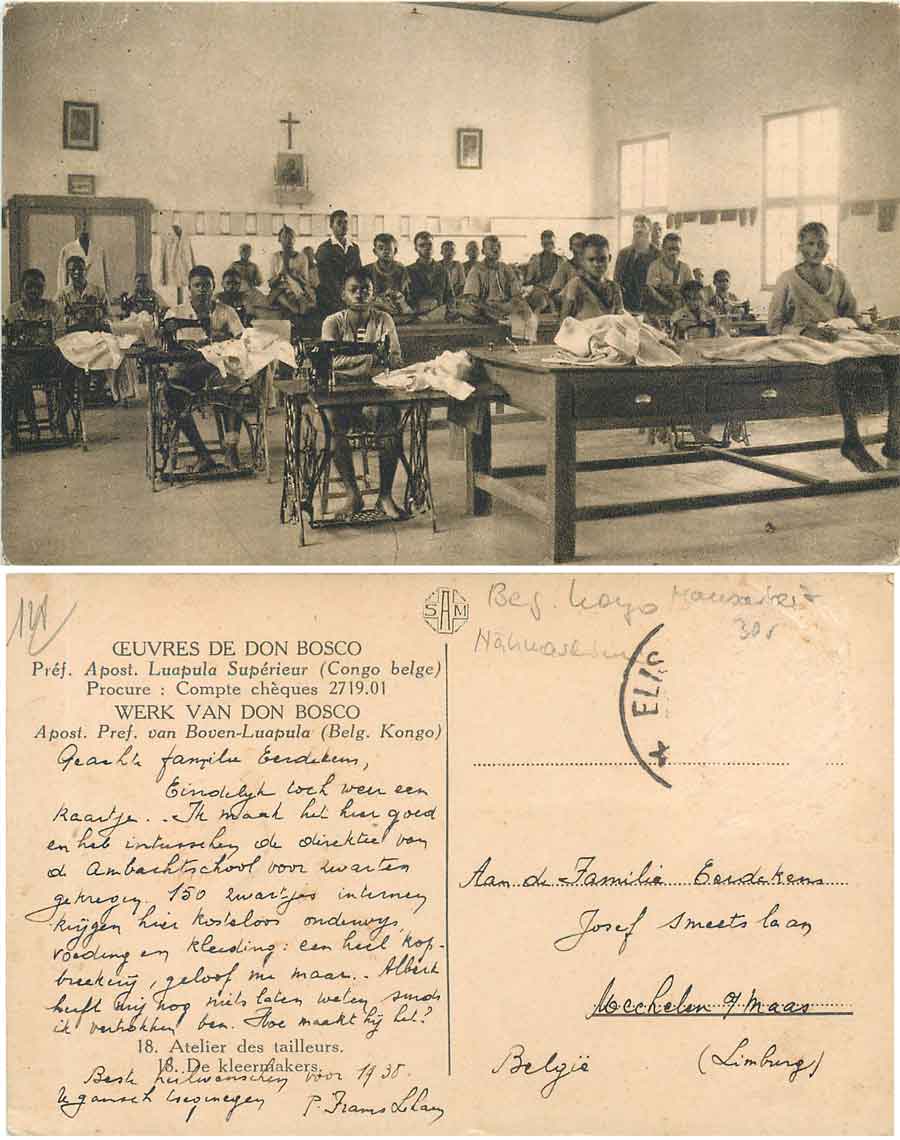 SAM
ŒUVRES DE DON BOSCO
Préf. Apost. Luapula Supérieur (Congo belge)
Procure : Compte chèques 2719.01
WERK VAN DON BOSCO
Apost. Pref. van Boven-Luapula (Belg. Kongo)
Geachte familie Eerdekens,
Eindelijk toch weer een
kaartje.. Ik maak het hier goed
en heb intusschen de direktie van
de Ambachtschool voor zwarten
gekregen. 150 zwartjes internen
krijgen hier kosteloos onderwijs,
voeding en kleeding: een heel kop-
brekerij, geloof me maar.. Albert
heeft mij nog niets laten weten sinds
ik vertrokken ben. Hoe maakt hij het?
18. Atelier des tailleurs.
18. De kleermakers.
Beste heilwenschen voor 1938.
Uw gansch toegenegen
P. Frans
Belg. Kongo
30,-
ELIS
Aan de Familie Eerdekens
Josef Smeets laan
Mechelen a/Maas
België (Limburg)